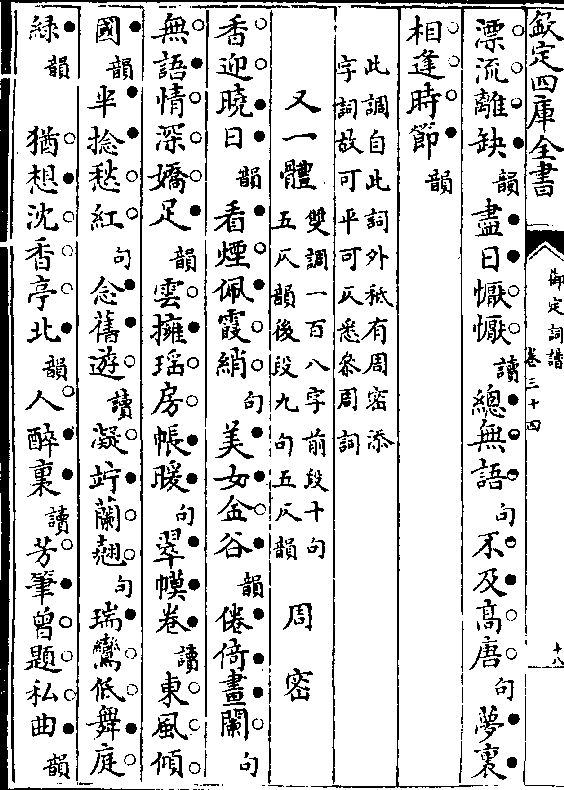 欽定四庫全書
御定詞譜
卷三十四
十八
漂流離缺韻盡日懨懨讀總無語句不及高唐句夢裏
相逢時節韻
此調自此詞外秪有周密添
字詞故可平可仄悉叅周詞
又一體雙調一百八字前段十句
五仄韻後段九句五仄韻周密
香迎曉日韻看煙佩霞綃句美女金谷韻倦倚畫闌句
無語情深嬌足韻雲擁瑤房帳暖句翠幙卷讀東風傾
國韻半捻愁紅句念舊遊讀凝竚蘭翹句瑞鸞低舞庭
綠韻猶想沈香亭北韻人醉裏讀芳筆曾題私曲韻